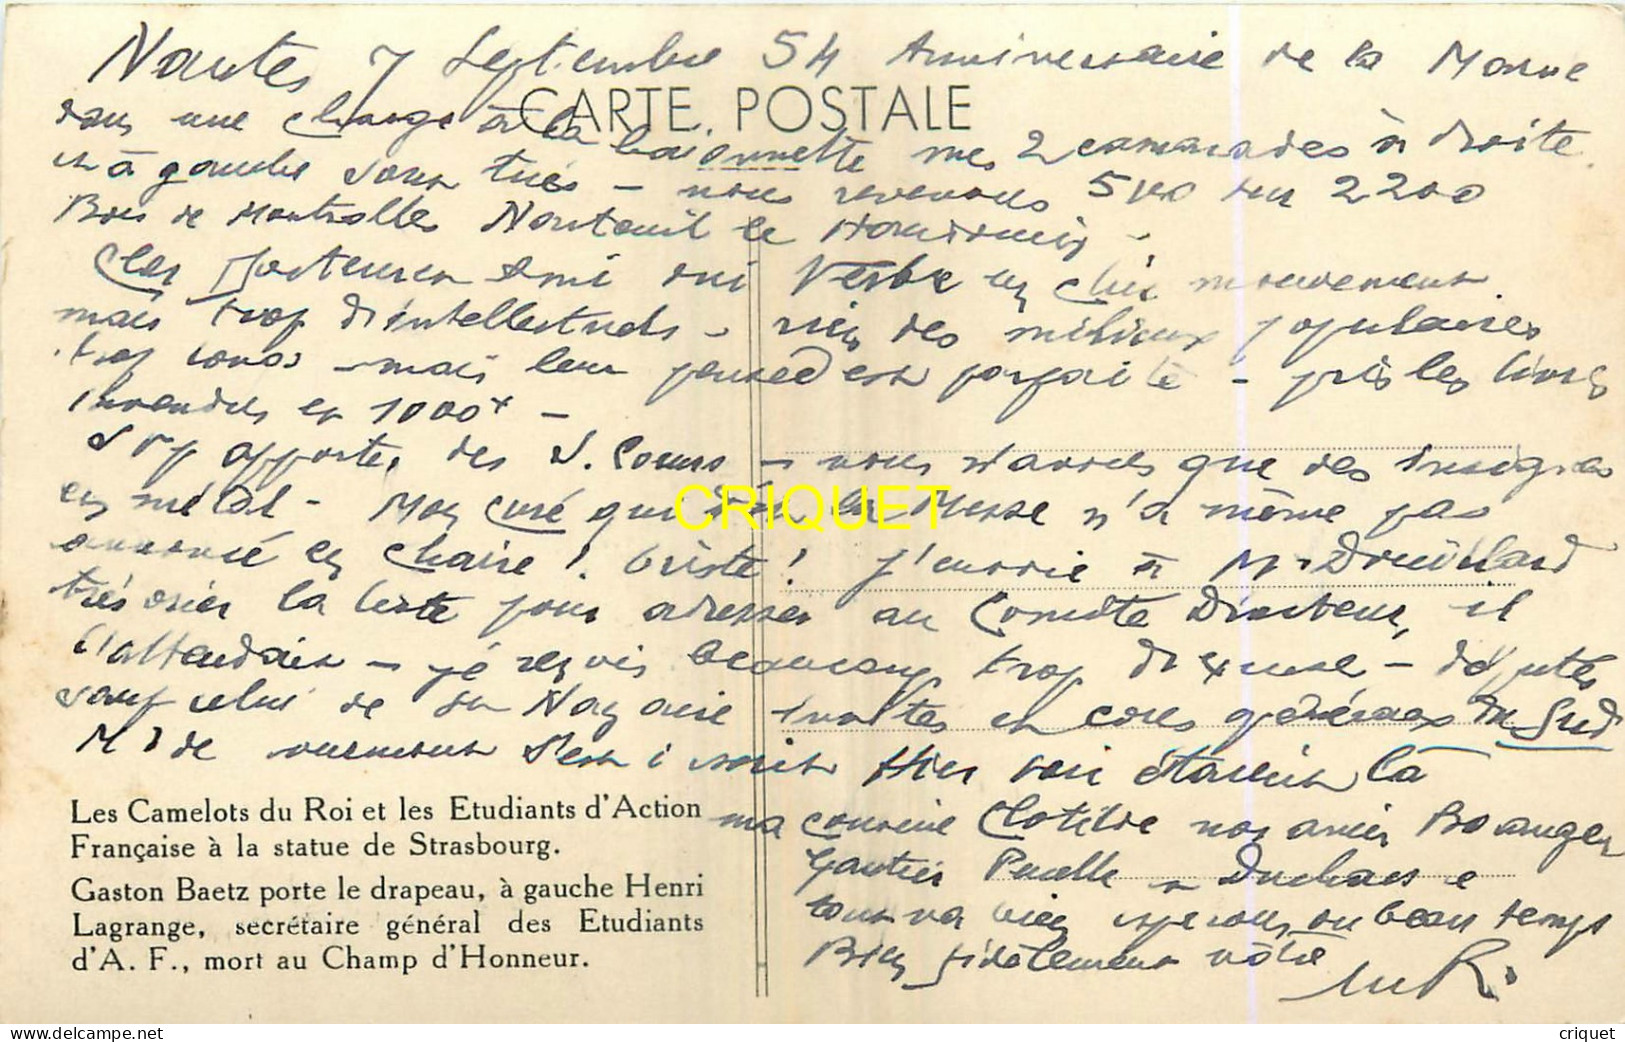 Nantes 7 Septembre 54 Anniversaire de la Marne
CARTE POSTALE
dans une charge à la baïonnette mes 2 camarades à droite
et à gauche sont tués - nous revenons 500 sur 2200
Bois de Montrolles Nanteuil le Haudouin -
Cher Ami oui Verbe en cher mouvement
mais trop d'intellectuels - rien des milieux populaires
trop - mais leur pensée est parfaite - près les livres
invendus en 1000 -
apporter des S. Coeurs - nous n'avons que des insignes
en métal - Mon curé qui dit la Messe n'a même pas
annoncé en chaire ! triste ! J'envoie à M. Drouillard
trésorier la liste pour adresser au Comité Directeur, il
l'attendait - je reçois beaucoup trop d'excuses - députés
sauf celui de St Nazaire invités et cons généraux du Sud
M de s'est inscrit Hier soir étaient là
ma cousine Clotilde nos amis Boranger
Gautier Pucelle à Duchasse
tout va bien espérons du beau temps
Bien fidèlement vôtre
CRIQUET
Les Camelots du Roi et les Etudiants d'Action
Française à la statue de Strasbourg.
Gaston Baetz porte le drapeau, à gauche Henri
Lagrange, secrétaire général des Etudiants
d'A. F., mort au Champ d'Honneur.
www.delcampe.net
criquet